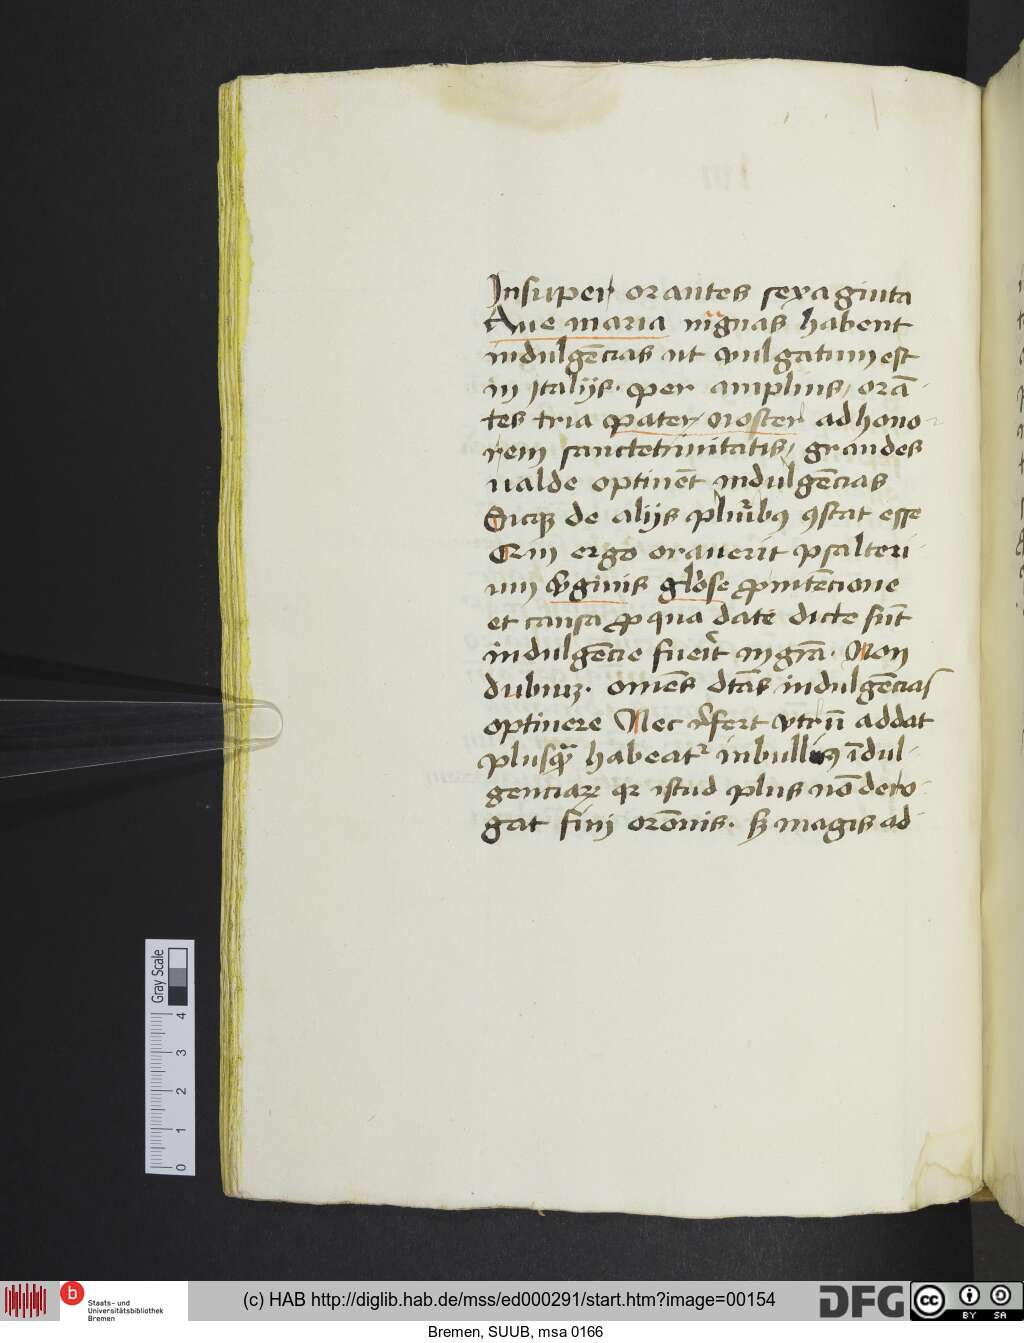 Insuper orantes sexaginta
Aue maria mãgnas habent
indulgēcias ut vulgatum est
in Italijs. per amplius, orā-
tes tria pater noster ad hono-
rem sancte trinitatis, grandes
ualde optinēt indulgēcias
Sicqꝫ de alijs pluribꝰ ꝯstat esse
Qui ergo orauerit psalteri-
um v̾ginis gl̾ose ꝓ intēcione
et causa ꝓ qua date dicte sūt
indulgēcie fuerit in gr̄a. Non
dubiuꝫ. omēs dt̄as indulgēcias
optinere Nec r̾fert vtrū addat
plusqᷓ habeatᷣ in bullis īdul-
genciaꝝ qꝛ istud plus nō dero-
gat fini or̄onis. sꝫ magis ad-
Gray Scale
0 1 2 3 4
Staats- und
Universitätsbibliothek
Bremen
(c) HAB http://diglib.hab.de/mss/ed000291/start.htm?image=00154
DFG
cc BY SA
Bremen, SUUB, msa 0166